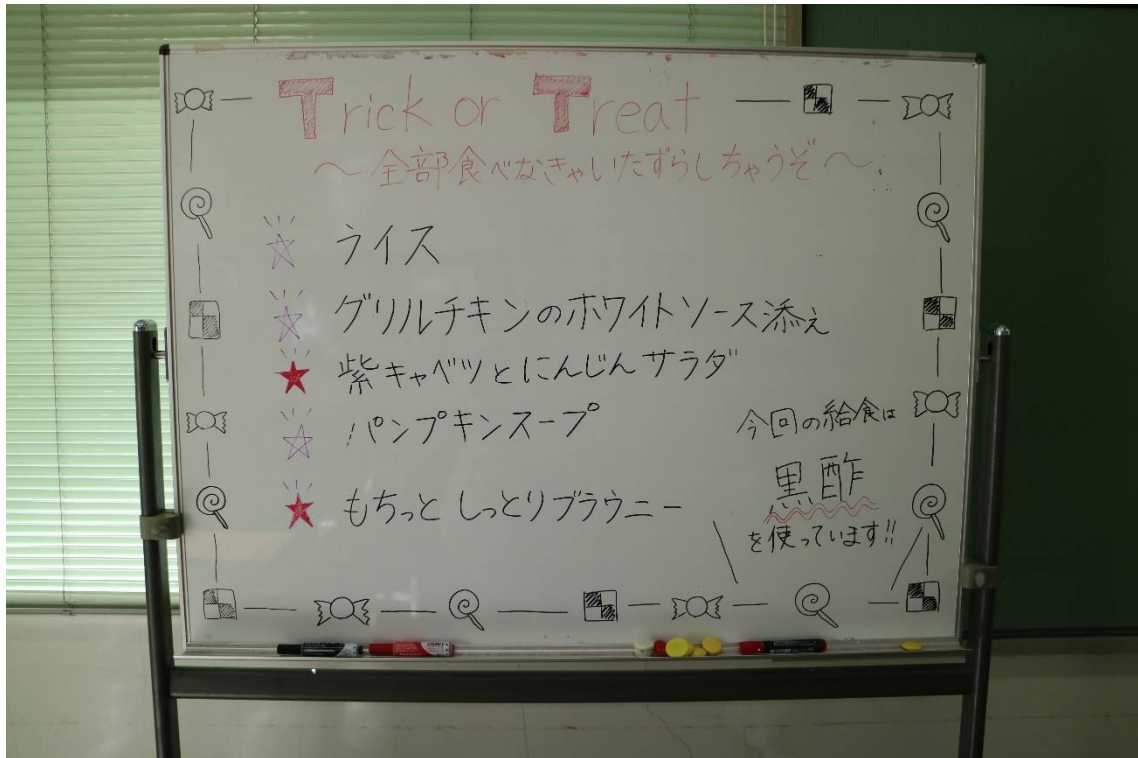 Trick or Treat
〜全部食べなきゃいたずらしちゃうぞ〜
ライス
グリルチキンのホワイトソース添え
紫キャベツとにんじんサラダ
パンプキンスープ
もちっとしっとりブラウニー
今回の給食は
黒酢
を使っています!!